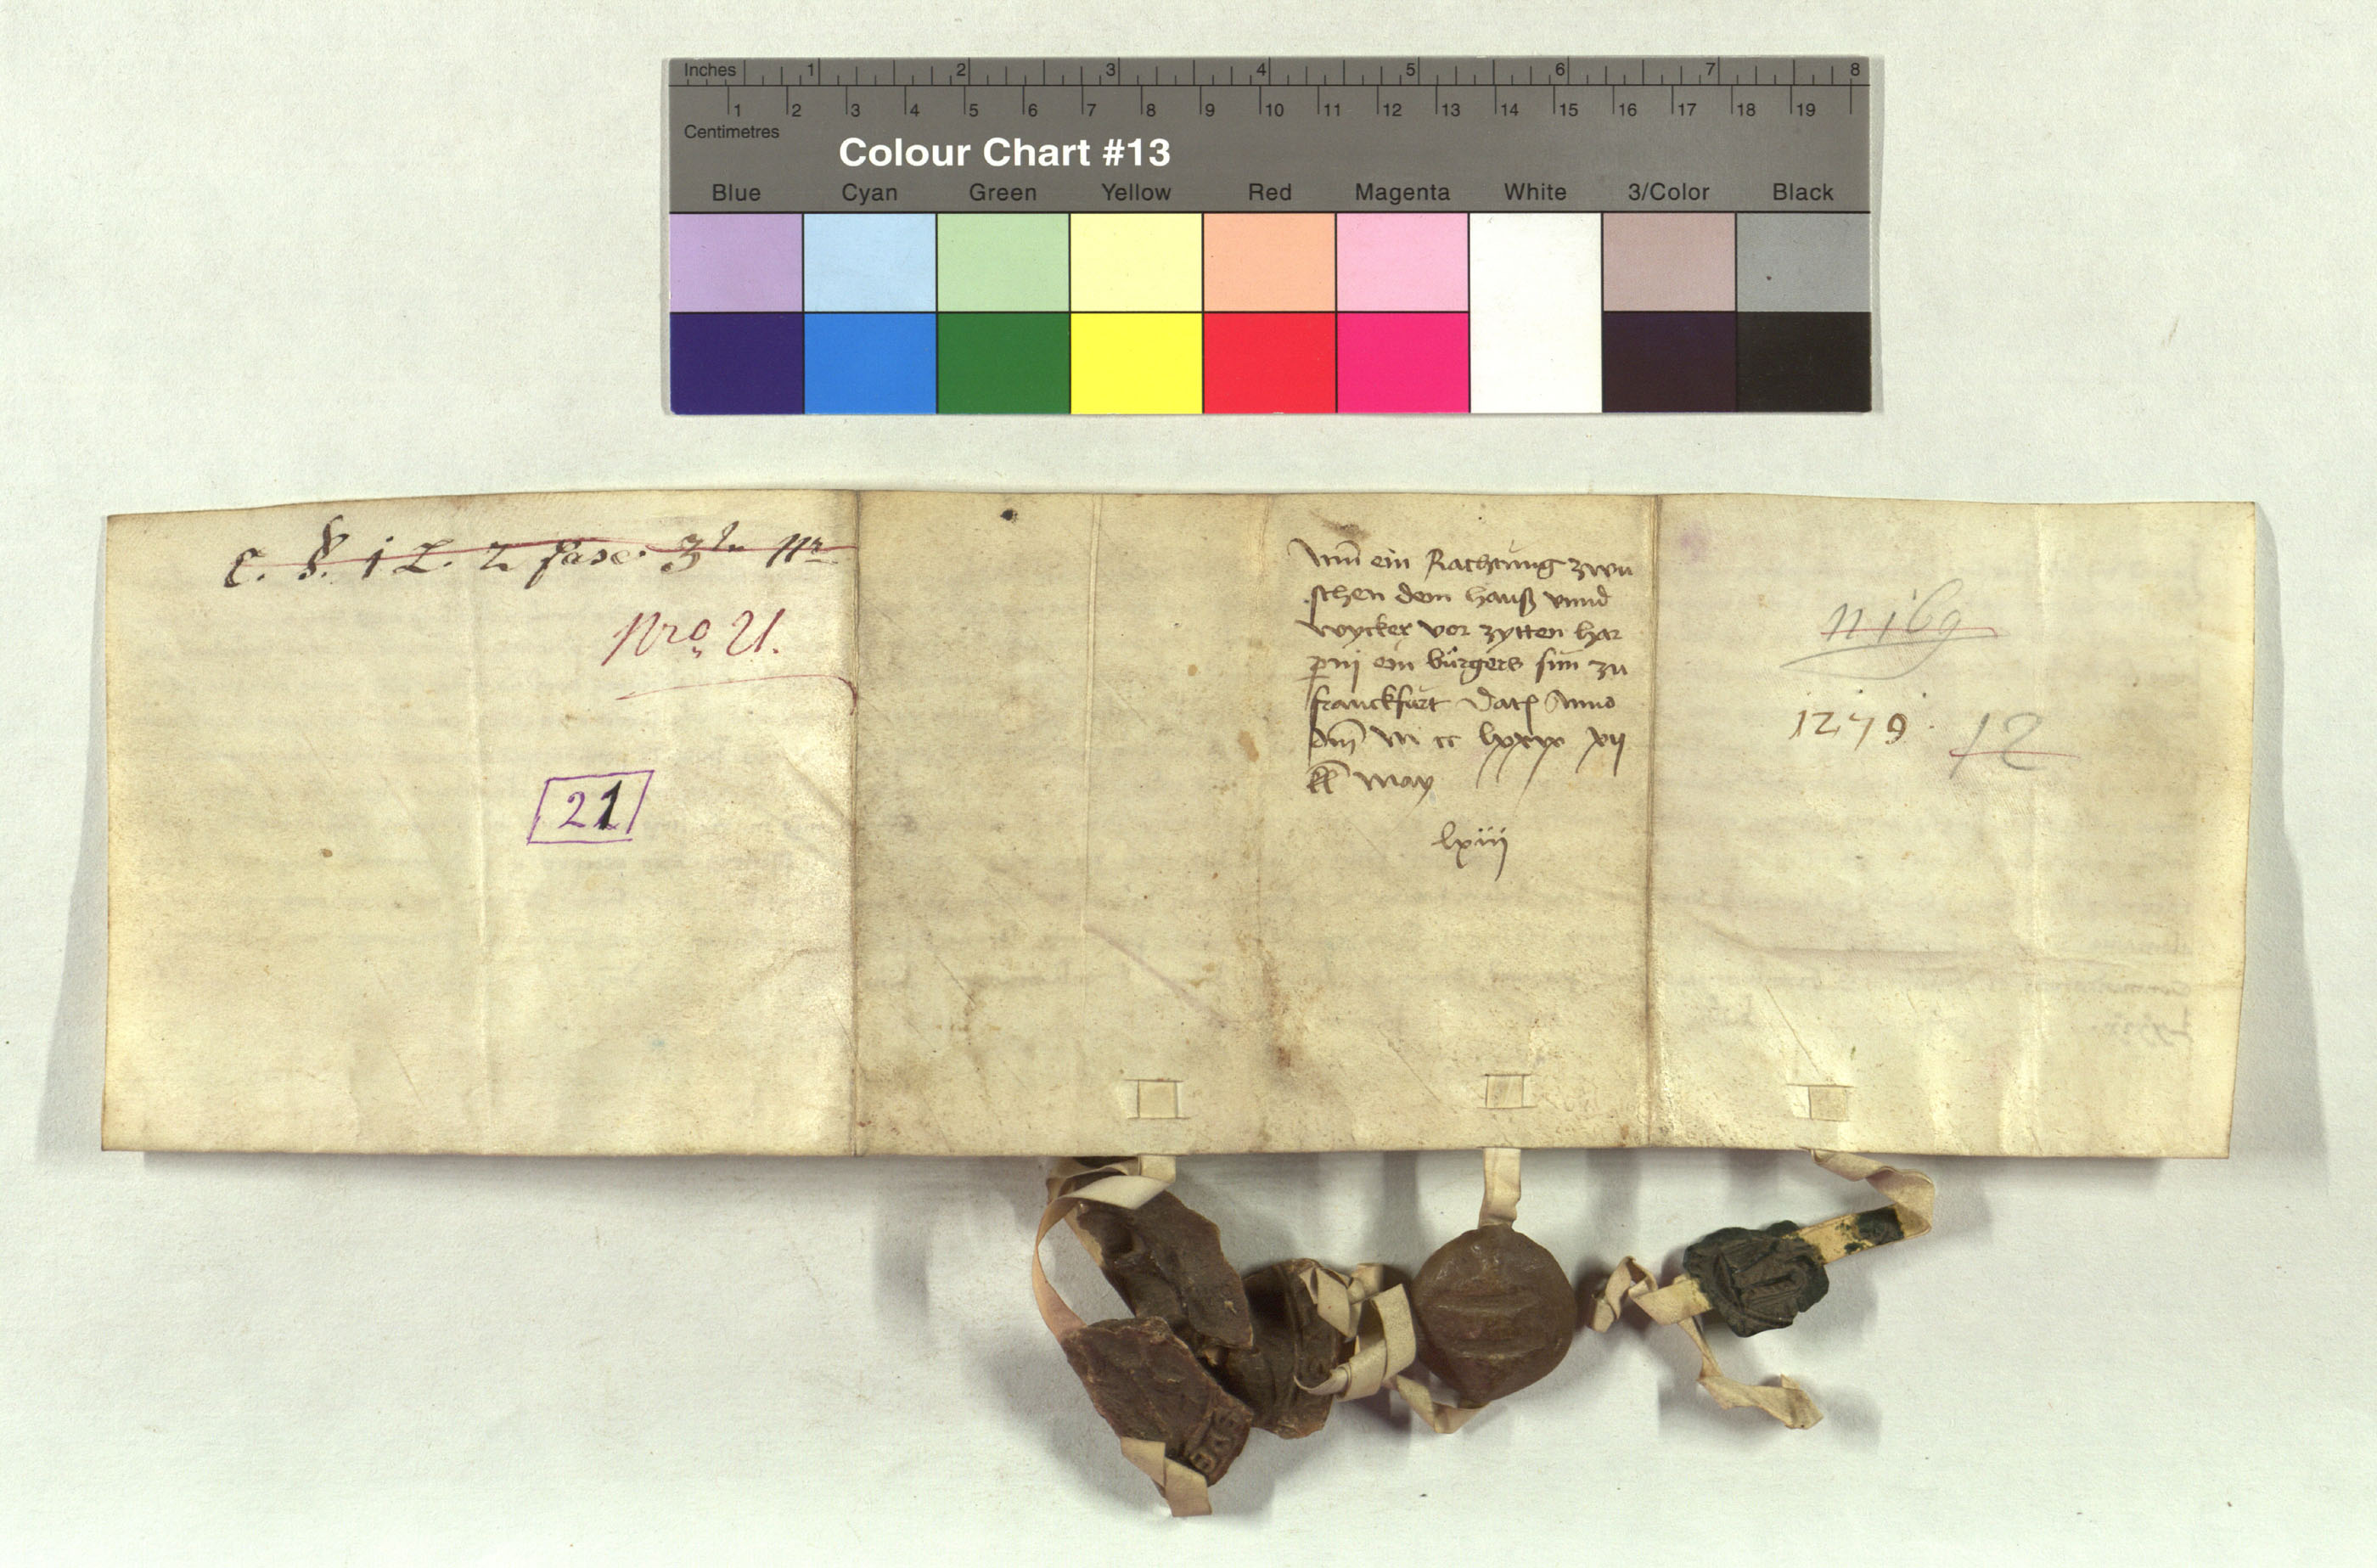 Inches 1 2 3 4 5 6 7 8
1 2 3 4 5 6 7 8 9 10 11 12 13 14 15 16 17 18 19
Centimetres
Colour Chart #13
Blue Cyan Green Yellow Red Magenta White 3/Color Black
C. 8. i L. 2 fasc. 3 Nr
Nro 21.
21
Um̅ ein Rachtung zwu
schen dem hauß vnnd
wycker vor zytten har
pnij ein bürgers sun zu
franckfurt Dat Anno
dm̅ M cc lxxix xij
kl̅ may
lxiij
1279.
12